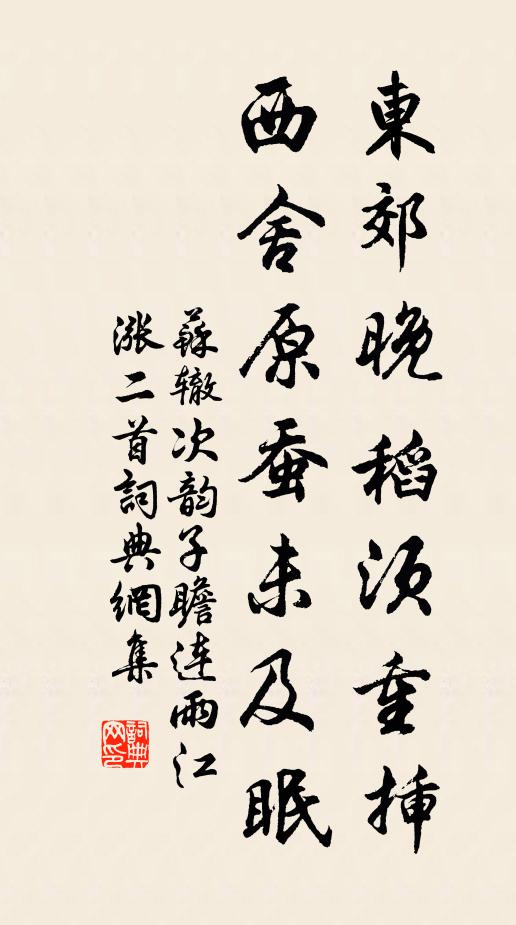 東郊晚稻須重插
西舍原蚕未及眠
蘇辙次韵子瞻連雨江
漲二首詞典網集
詞典
网印